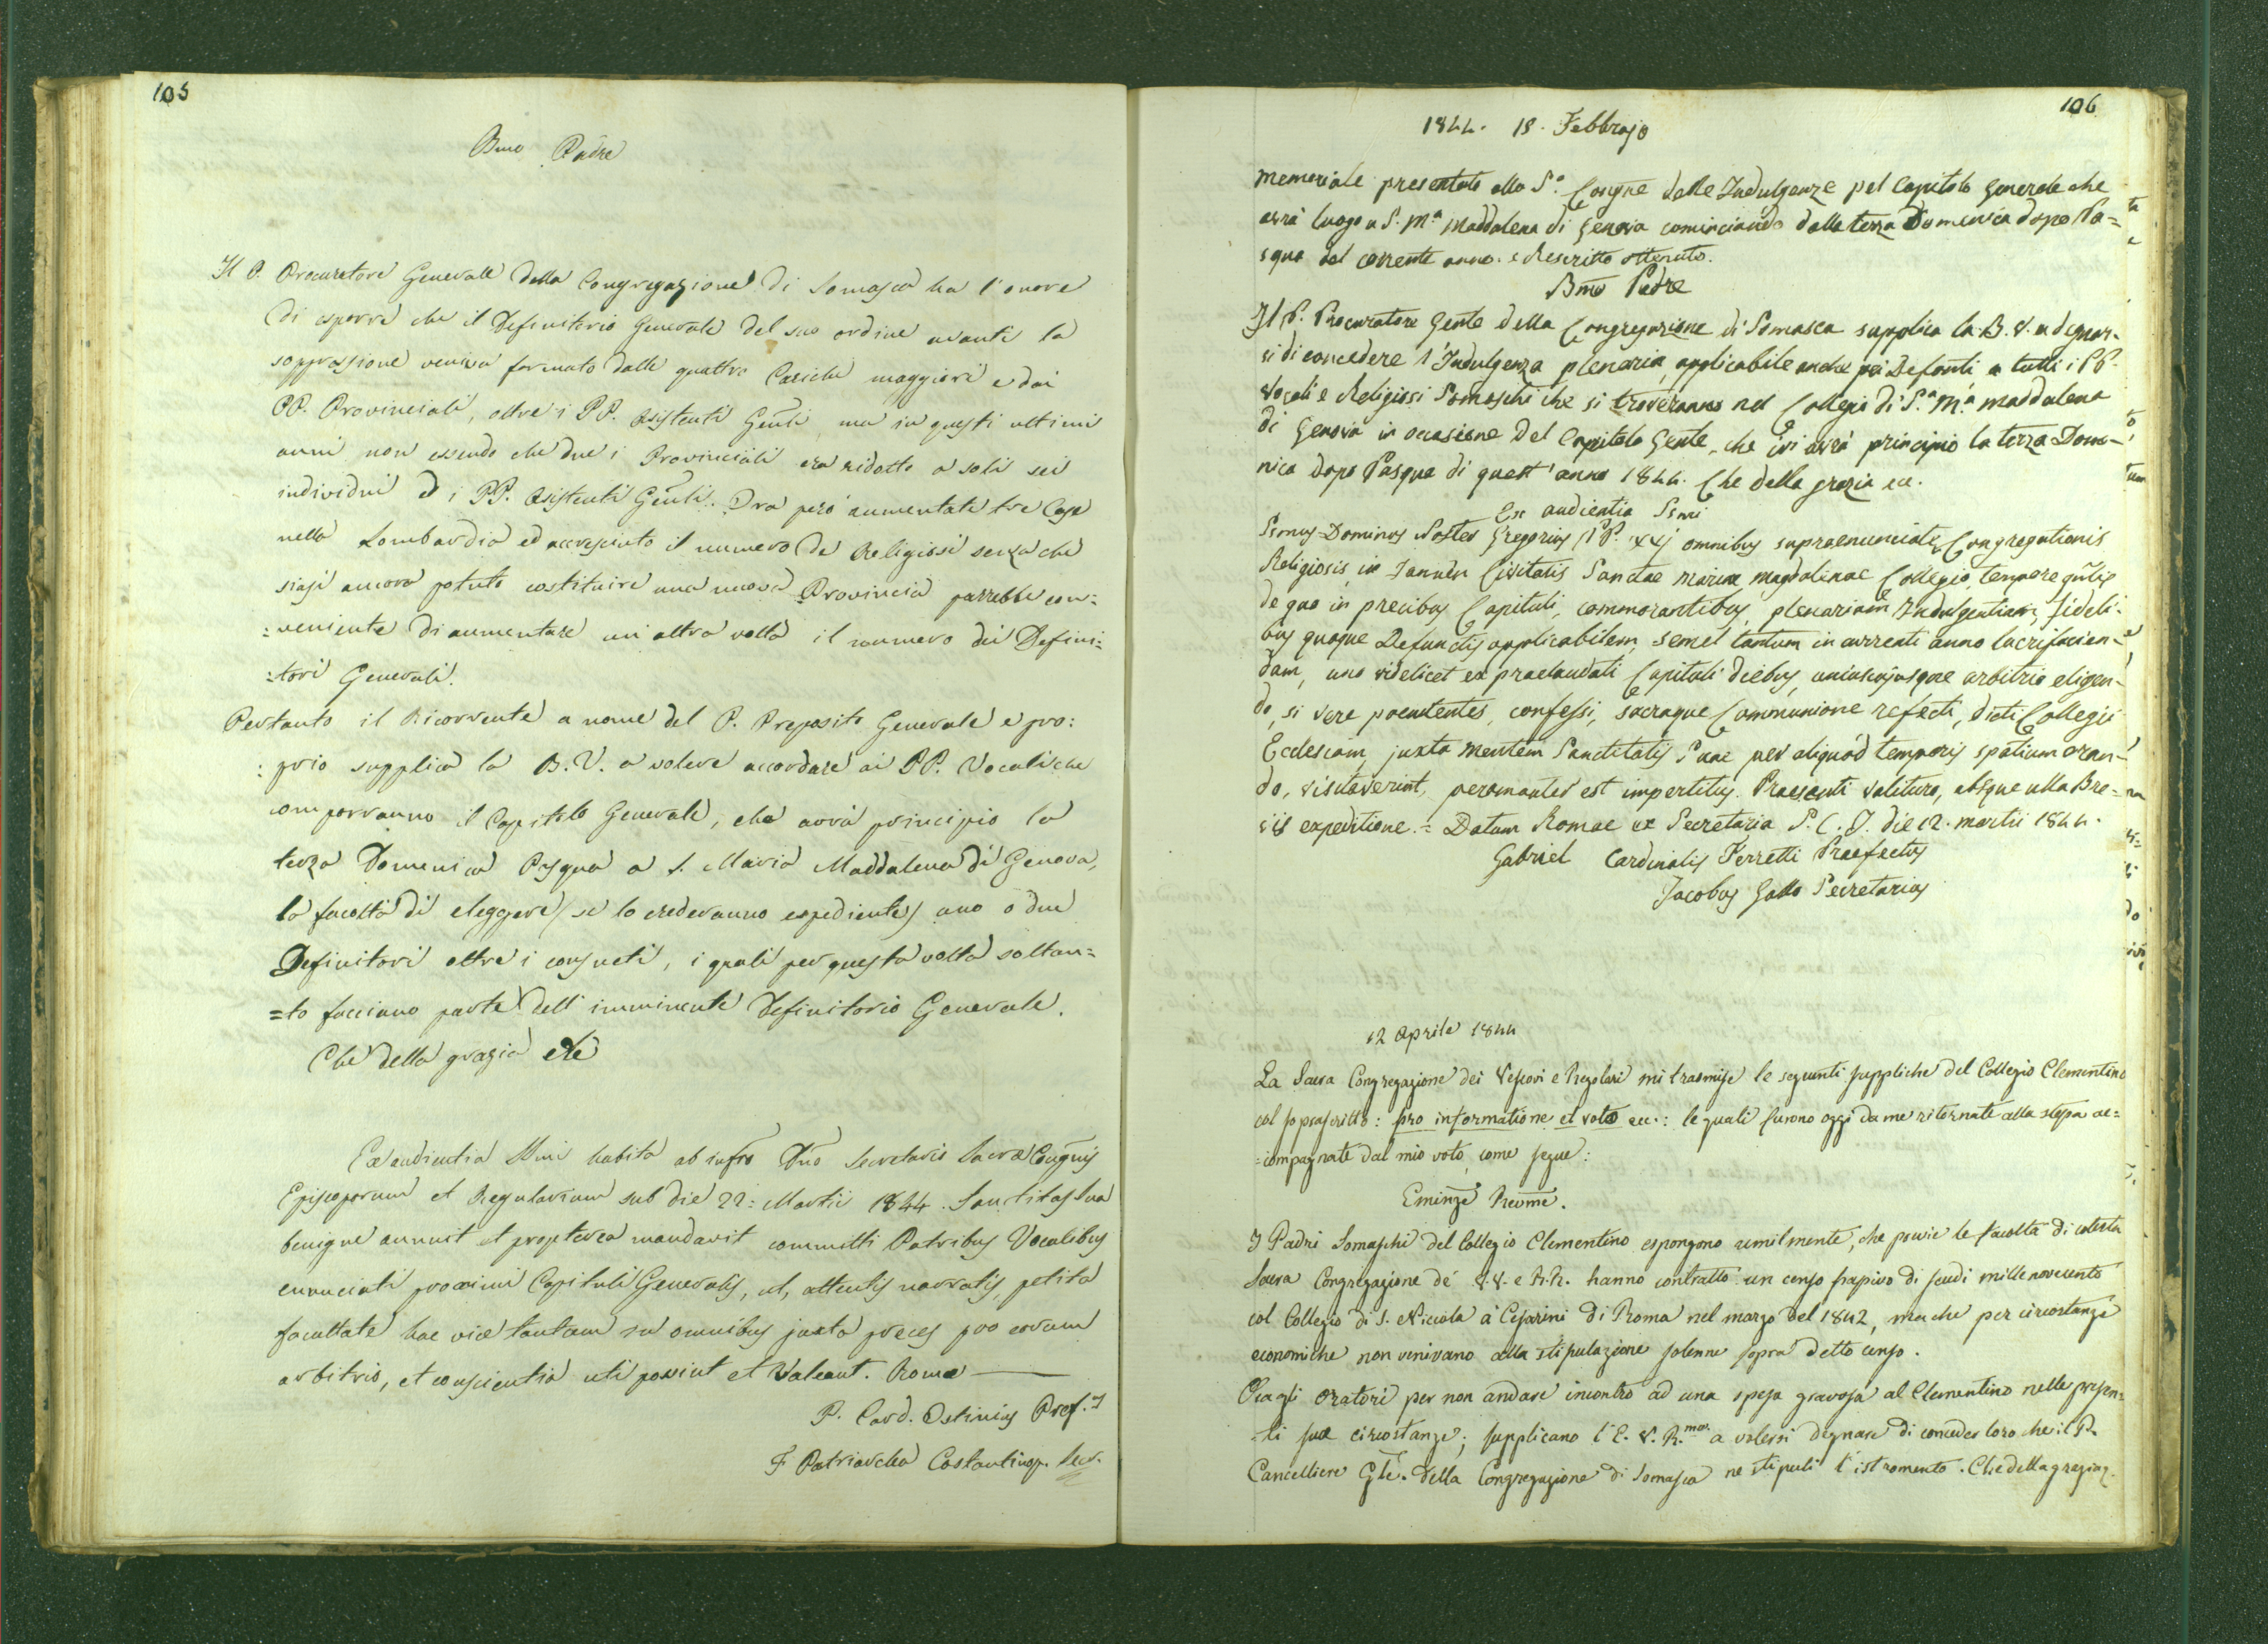 105
Bmo Padre
Il P. Procuratore Generale della Congregazione di Somasca ha l'onore
di esporre che il Definitorio Generale del suo ordine avanti la
soppressione veniva formato dalle quattro Cariche maggiori e dai
PP. Provinciali, oltre i PP. Assistenti Gen̄li, ma in questi ultimi
anni non essendo che due i Provinciali era ridotto a soli sei
individui ed i PP. Assistenti Gen̄li. Ora però aumentate tre Case
nella Lombardia ed accresciuto il numero de Religiosi senza che
siasi ancora potuto costituire una nuova Provincia parrebbe con:
:veniente di aumentare un'altra volta il numero dei Defini:
:tori Generali.
Pertanto il Ricorrente a nome del P. Preposito Generale e pro:
:prio supplica la B. V. a volere accordare ai PP. Vocali che
comporranno il Capitolo Generale, che avrà principio la
terza Domenica Pasqua a S. Maria Maddalena di Genova,
la facoltà di eleggere (se lo crederanno espediente) uno o due
Definitori oltre i consueti, i quali per questa volta soltan=
=to facciano parte dell'imminente Definitorio Generale.
Che della grazia etc
Ex audientia SSmi habita ab infro Dno Secretario Sacræ Congnis
Episcoporum et Regularium sub die 22: Martii 1844. Sanctitas Sua
benigne annuit et propterea mandavit committi Patribus Vocalibus
enunciati proximi Capituli Generalis, ut, attentis narratis, petita
facultate hac vice tantum in omnibus juxta preces pro eorum
arbitrio, et conscientia uti possint et valeant. Romæ
P. Card. Ostinius Pref.s
F. Patriarcha Costantinop. Secr.
106
1844. 18. Febbrajo
Memoriale presentato alla S.a Congne delle Indulgenze pel Capitolo Generale che
avrà luogo a S. M.a Maddalena di Genova cominciando dalla terza Domenica dopo Pa=
squa del corrente anno. e Rescritto ottenuto.
Bmo Padre
Il P. Procuratore Genle della Congregazione di Somasca supplica la B. V. a degnar-
si di concedere l'Indulgenza plenaria, applicabile anche pei Defonti a tutti i PP.
Vocali e Religiosi Somaschi che si troveranno nel Collegio di S.a M.a Maddalena
di Genova in occasione del Capitolo Genle, che ivi avrà principio la terza Dome-
nica dopo Pasqua di quest'anno 1844. Che della grazia ec.
Ex audientia SSmi
SSmus Dominus Noster Gregorius PP. XVI omnibus supraenunciatæ Congregationis
Religiosis in Januen Civitatis Sanctae Mariae Magdalenae Collegio, tempore gnlis
de quo in precibus Capituli, commorantibus, plenariam Indulgentiam, fideli-
bus quoque Defunctis applicabilem, semel tantum in currenti anno lucrifacien-
dam, uno videlicet ex praelaudati Capituli diebus, uniuscujusque arbitrio eligen-
do, si vere poenitentes, confessi, sacraque Communione refecti, dicti Collegii
Ecclesiam, juxta mentem Sanctitatis Suae per aliquod temporis spatium oran-
do, visitaverint, peramanter est impertitus. Praesenti valituro, absque ulla Bre-
vis expeditione. = Datum Romae ex Secretaria S. C. I. die 12. martii 1844.
Gabriel Cardinalis Ferretti Praefectus
Jacobus Gallo Secretarius
12 Aprile 1844
La Sacra Congregazione dei Vescovi e Regolari mi trasmise le seguenti suppliche del Collegio Clementino
col soprascritto: pro informatione et voto ec.: le quali furono oggi da me ritornate alla stessa ac=
=compagnate dal mio voto, come segue:
Eminze Revme.
I Padri Somaschi del Collegio Clementino espongono umilmente, che previe le facoltà di cotesta
Sacra Congregazione de' V.V. e R.R. hanno contratto un censo passivo di scudi mille novecento
col Collegio di S. Niccola a' Cesarini di Roma nel marzo del 1842, ma che per circostanze
economiche non venivano alla stipulazione solenne sopra detto censo.
Ora gli Oratori per non andare incontro ad una spesa gravosa al Clementino nelle presen=
=ti sue circostanze; supplicano l'E. V. R.me a volersi degnare di conceder loro che il P.
Cancelliere Gle. della Congregazione di Somasca ne stipuli l'istromento. Che della grazia